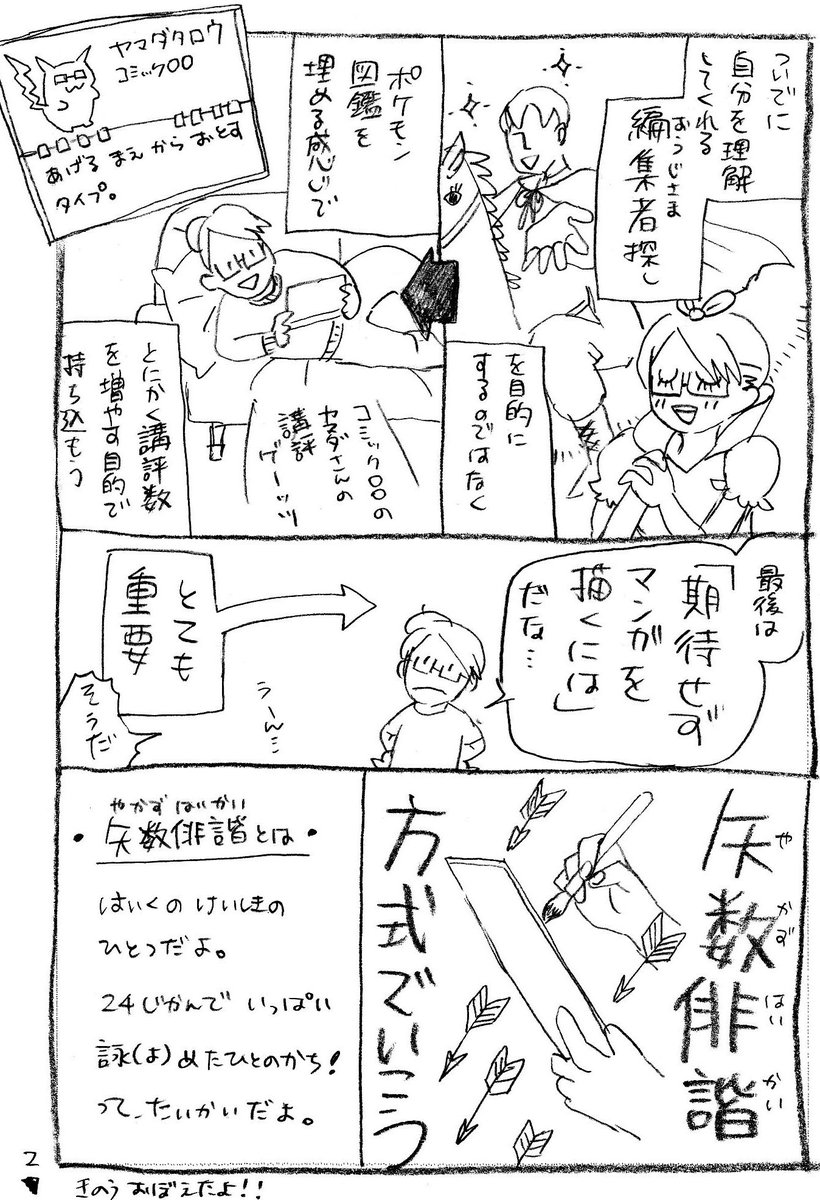 ついでに
自分を理解
してくれる
編集者探し
おうじさま
を目的に
するのではなく
ポケモン
図鑑を
埋める感じで
ヤマダタロウ
コミック〇〇
あげる まえ から おとす
タイプ。
コミック〇〇の
ヤマダさんの
講評
ゲーッツ
とにかく講評数
を増やす目的で
持ち込もう
最後は
「期待せず
マンガを
描くには」
だな…
うーん…
とても
重要
そうだ
矢数俳諧
や かず はい かい
方式でいこう
やかず はいかい
・矢数俳諧とは・
はいくの けいしきの
ひとつだよ。
24じかんで いっぱい
詠(よ)めたひとのかち!
って、たいかいだよ。
2
きのう おぼえたよ!!